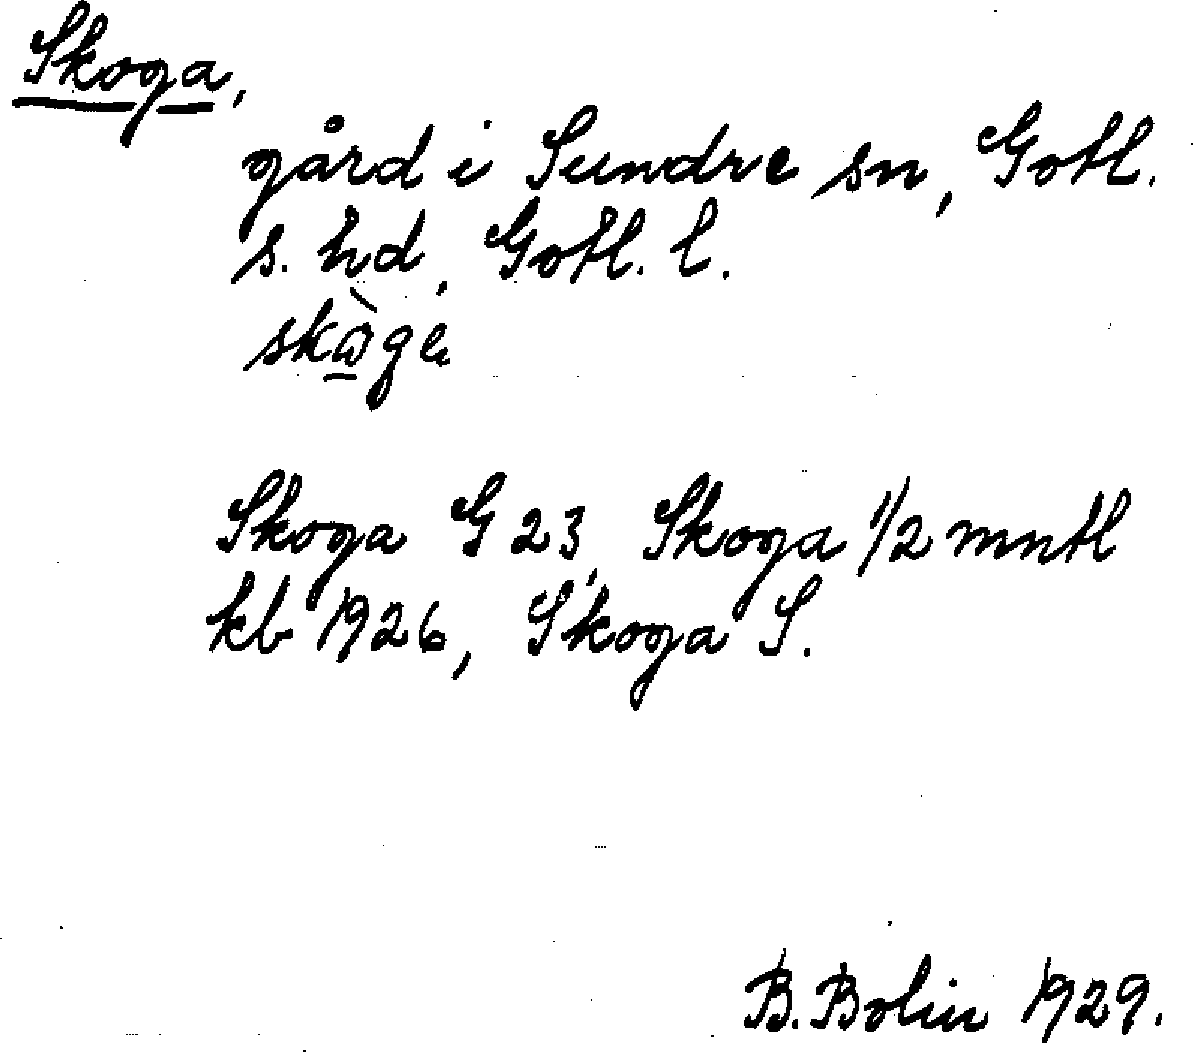 Skoga,
gård i Sundre sn, Gotl.
s. hd, Gotl. l.
Skoga G 23, Skoga 1/2 mntl
kb 1926, Skoga S.
B. Bolin 1929.